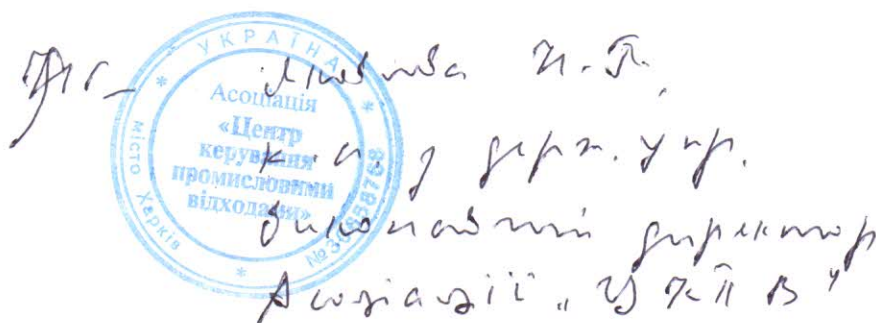 УКРАЇНА
місто Харків
Асоціація
«Центр
керування
промисловими
відходами»
Н. П.
к. н. з держ. упр.
виконавчий директор
Асоціації „ЦКПВ”